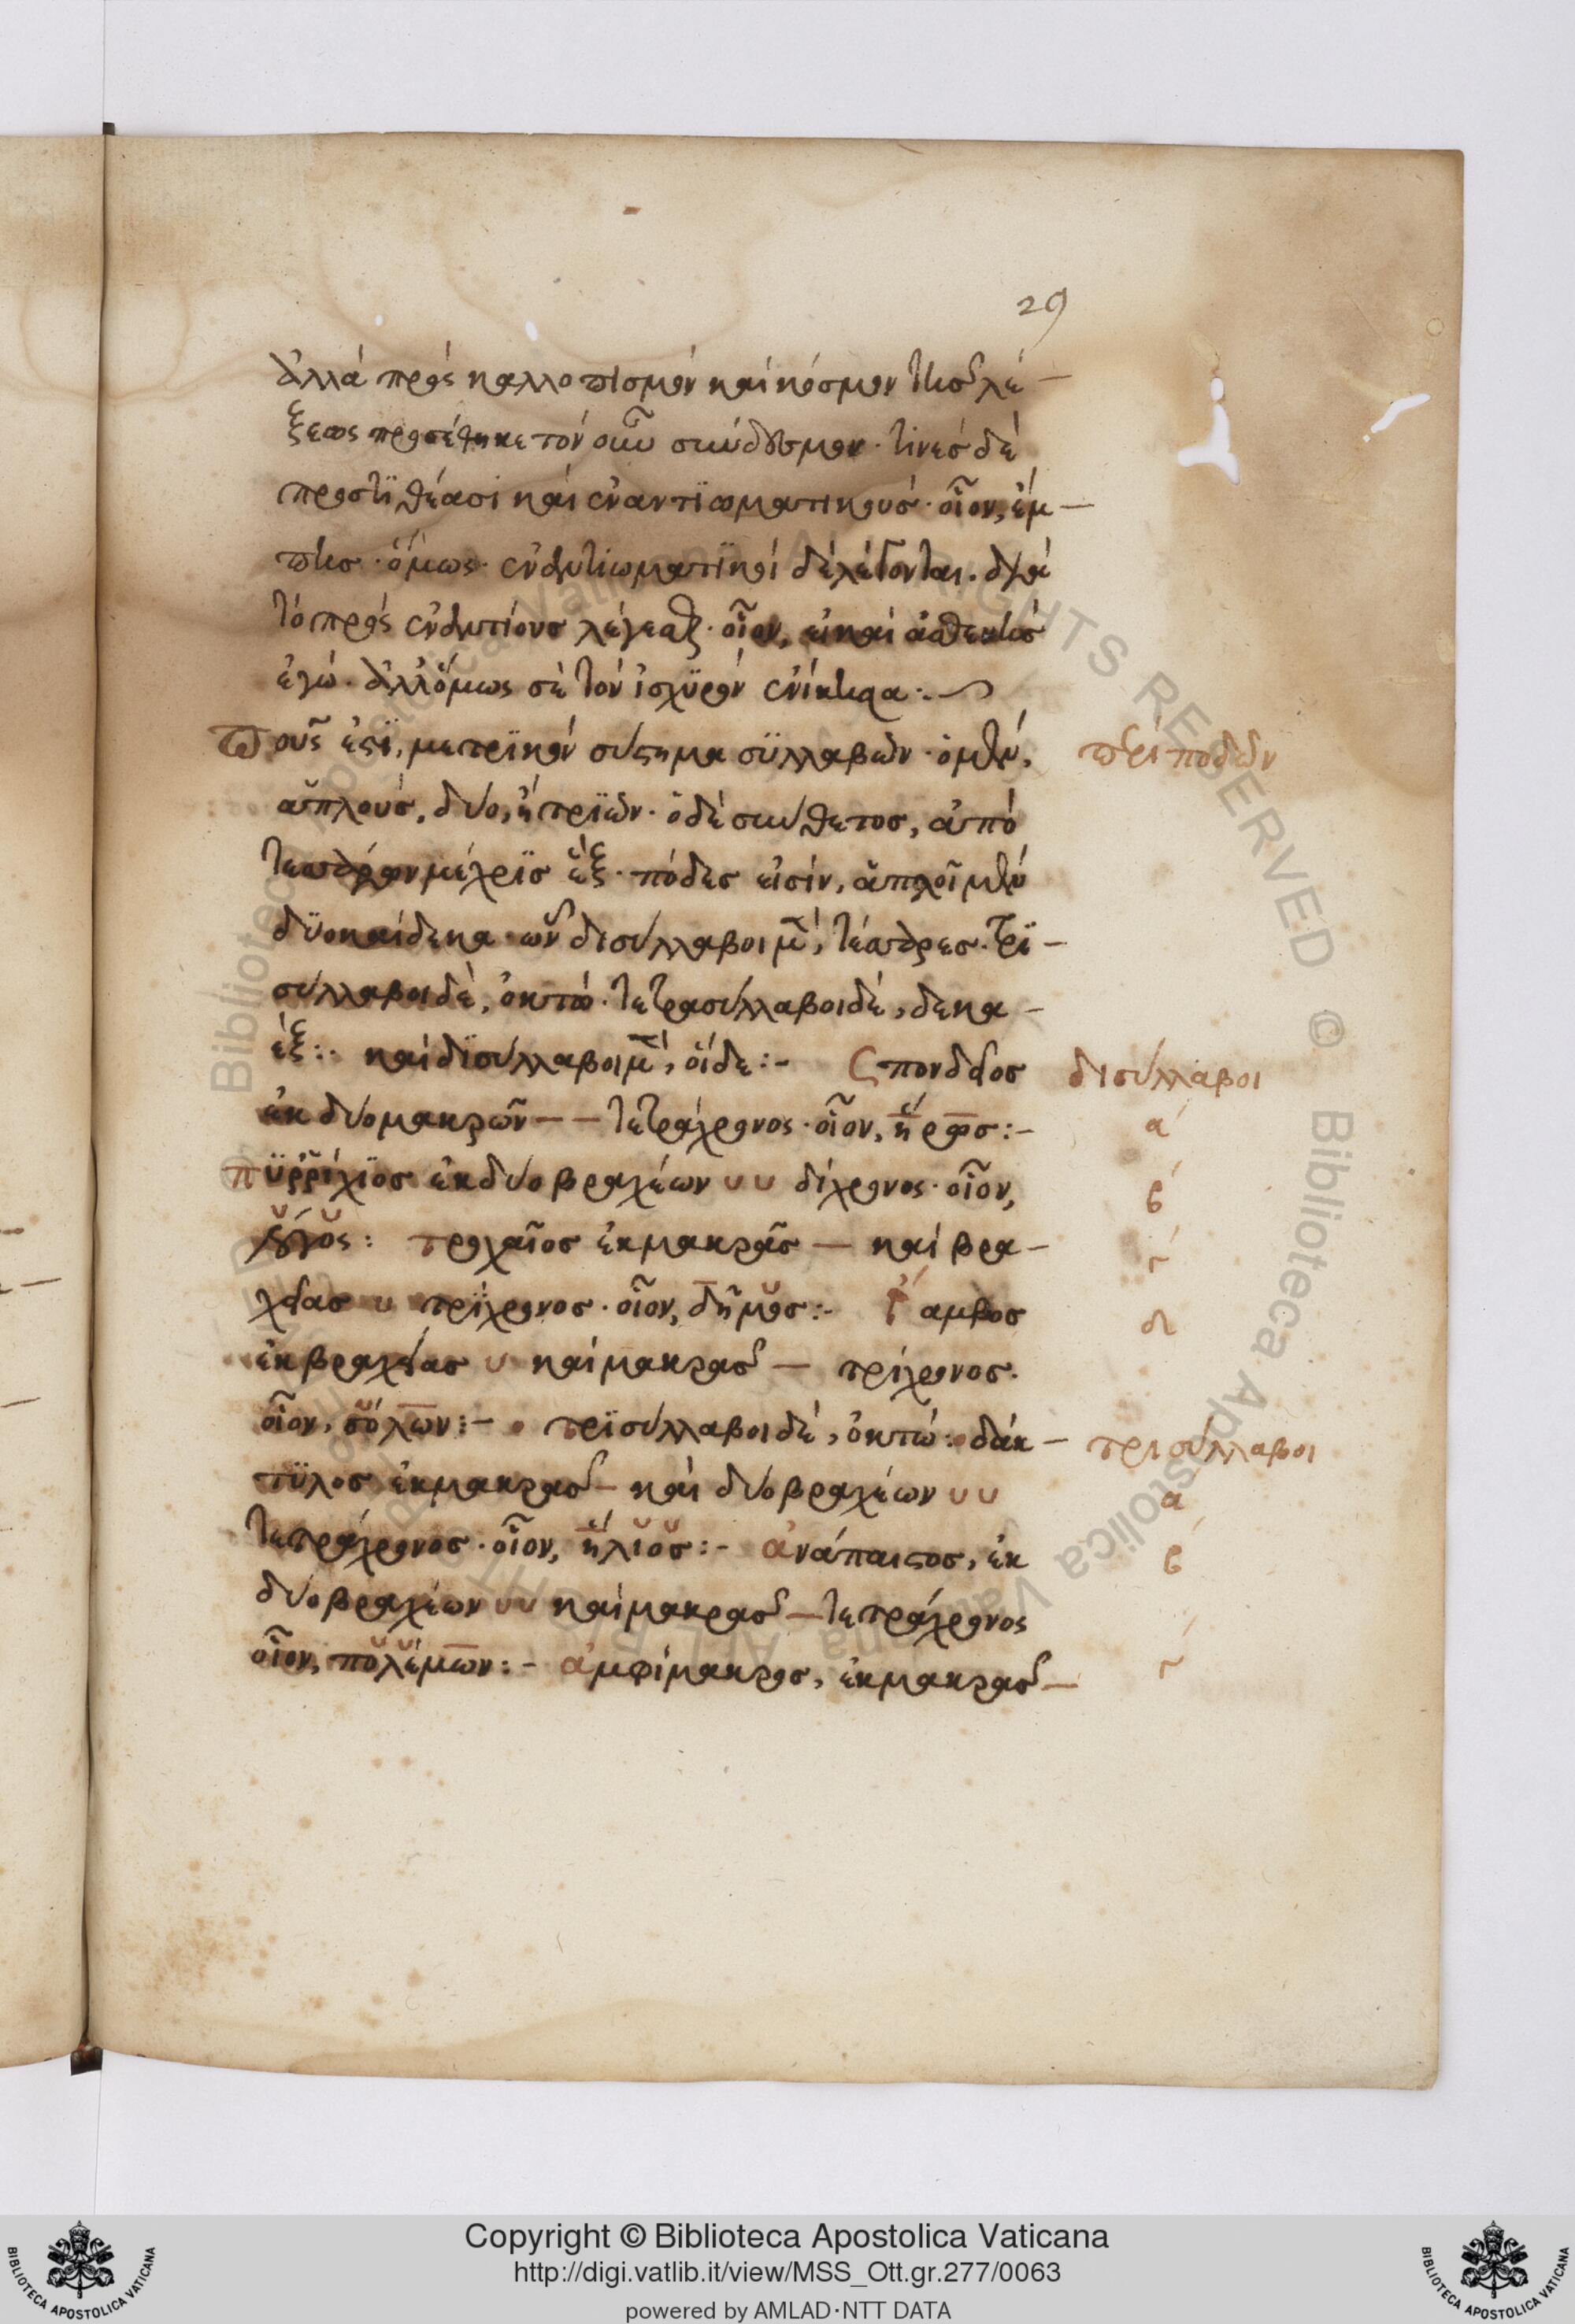 29
ἀλλὰ πρὸς καλλοπισμὸν καὶ κόσμον τῆς λέ-
ξεως προσέθηκε τὸν οὖν σύνδεσμον· τινὲς δὲ
προστϊθέασι καὶ ἐναντϊωματικοὺς· οἷον, ἔμ-
πης· ὅμως· ἐναντιωματϊκοὶ δὲ λέγονται. διὰ
τὸ πρὸς ἐναντίους λέγεσθαι· οἷον, εἰ καὶ ἀσθενὴς
ἐγὼ· ἀλλ' ὅμως σὲ τὸν ἰσχϋρὸν ἐνίκησα:
Ποῦς ἐστϊ, μετρϊκὸν σύστημα σϋλλαβῶν· ὁ μὲν,
περὶ ποδῶν
ἁπλοὺς, δύο, ἢ τρϊῶν· ὁ δὲ σύνθετος, ἀπὸ
τεσσάρων μέχρϊς ἓξ· πόδες εἰσίν, ἁπλοῖ μὲν
δϋοκαίδεκα· ὧν δισύλλαβοι μὲν, τέσσαρες· τρϊ-
σύλλαβοι δὲ, ὀκτώ· τετρασύλλαβοι δὲ, δεκα-
ὲξ:· καὶ δϊσύλλαβοι μὲν, οἵδε:- Σπονδεῖος
δισύλλαβοι
ἐκ δύο μακρῶν — — τετράχρονος· οἷον, ἥρως:-
α
πϋρρίχϊος ἐκ δύο βραχέων υ υ δίχρονος· οἷον,
β
λόγος: τροχαῖος ἐκ μακρᾶς — καὶ βρα-
γ
χείας υ τρϊχρονος· οἷον, δῆμος:- ἴαμβος
δ
ἐκ βραχείας υ καὶ μακρας — τρίχρονος.
οἷον, σόλων:- τρϊσύλλαβοι δὲ, ὀκτώ: δάκ-
τρισύλλαβοι
τϋλος ἐκ μακρας — καὶ δύο βραχέων υ υ
α
τετράχρονος· οἷον, ἥλιος:- ἀνάπαιστος, ἐκ
β
δύο βραχέων υ υ καὶ μακρας — τετράχρονος
οἷον, πολέμων:- ἀμφίμακρος, ἐκ μακρας —
γ
Copyright © Biblioteca Apostolica Vaticana
http://digi.vatlib.it/view/MSS_Ott.gr.277/0063
powered by AMLAD·NTT DATA
BIBLIOTECA APOSTOLICA VATICANA
BIBLIOTECA APOSTOLICA VATICANA